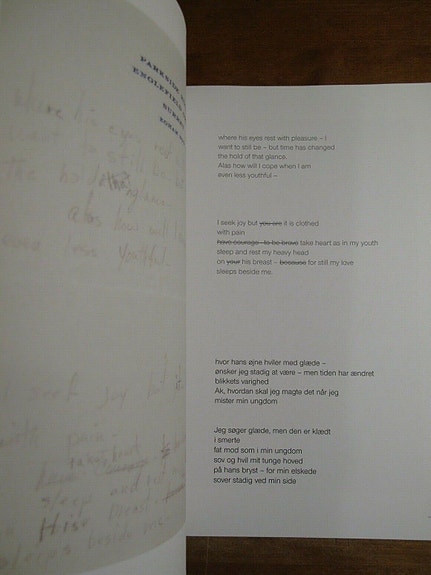 PARKSIDE
ENGLEFIELD
SURREY
where his eyes rest
want to still be
the hold of that glance
alas how will I
even less youthful
where his eyes rest with pleasure – I
want to still be – but time has changed
the hold of that glance.
Alas how will I cope when I am
even less youthful –
I seek joy but you are it is clothed
with pain
have courage - to be brave take heart as in my youth
sleep and rest my heavy head
on your his breast – because for still my love
sleeps beside me.
hvor hans øjne hviler med glæde –
ønsker jeg stadig at være – men tiden har ændret
blikkets varighed
Ak, hvordan skal jeg magte det når jeg
mister min ungdom
Jeg søger glæde, men den er klædt
i smerte
fat mod som i min ungdom
sov og hvil mit tunge hoved
på hans bryst – for min elskede
sover stadig ved min side